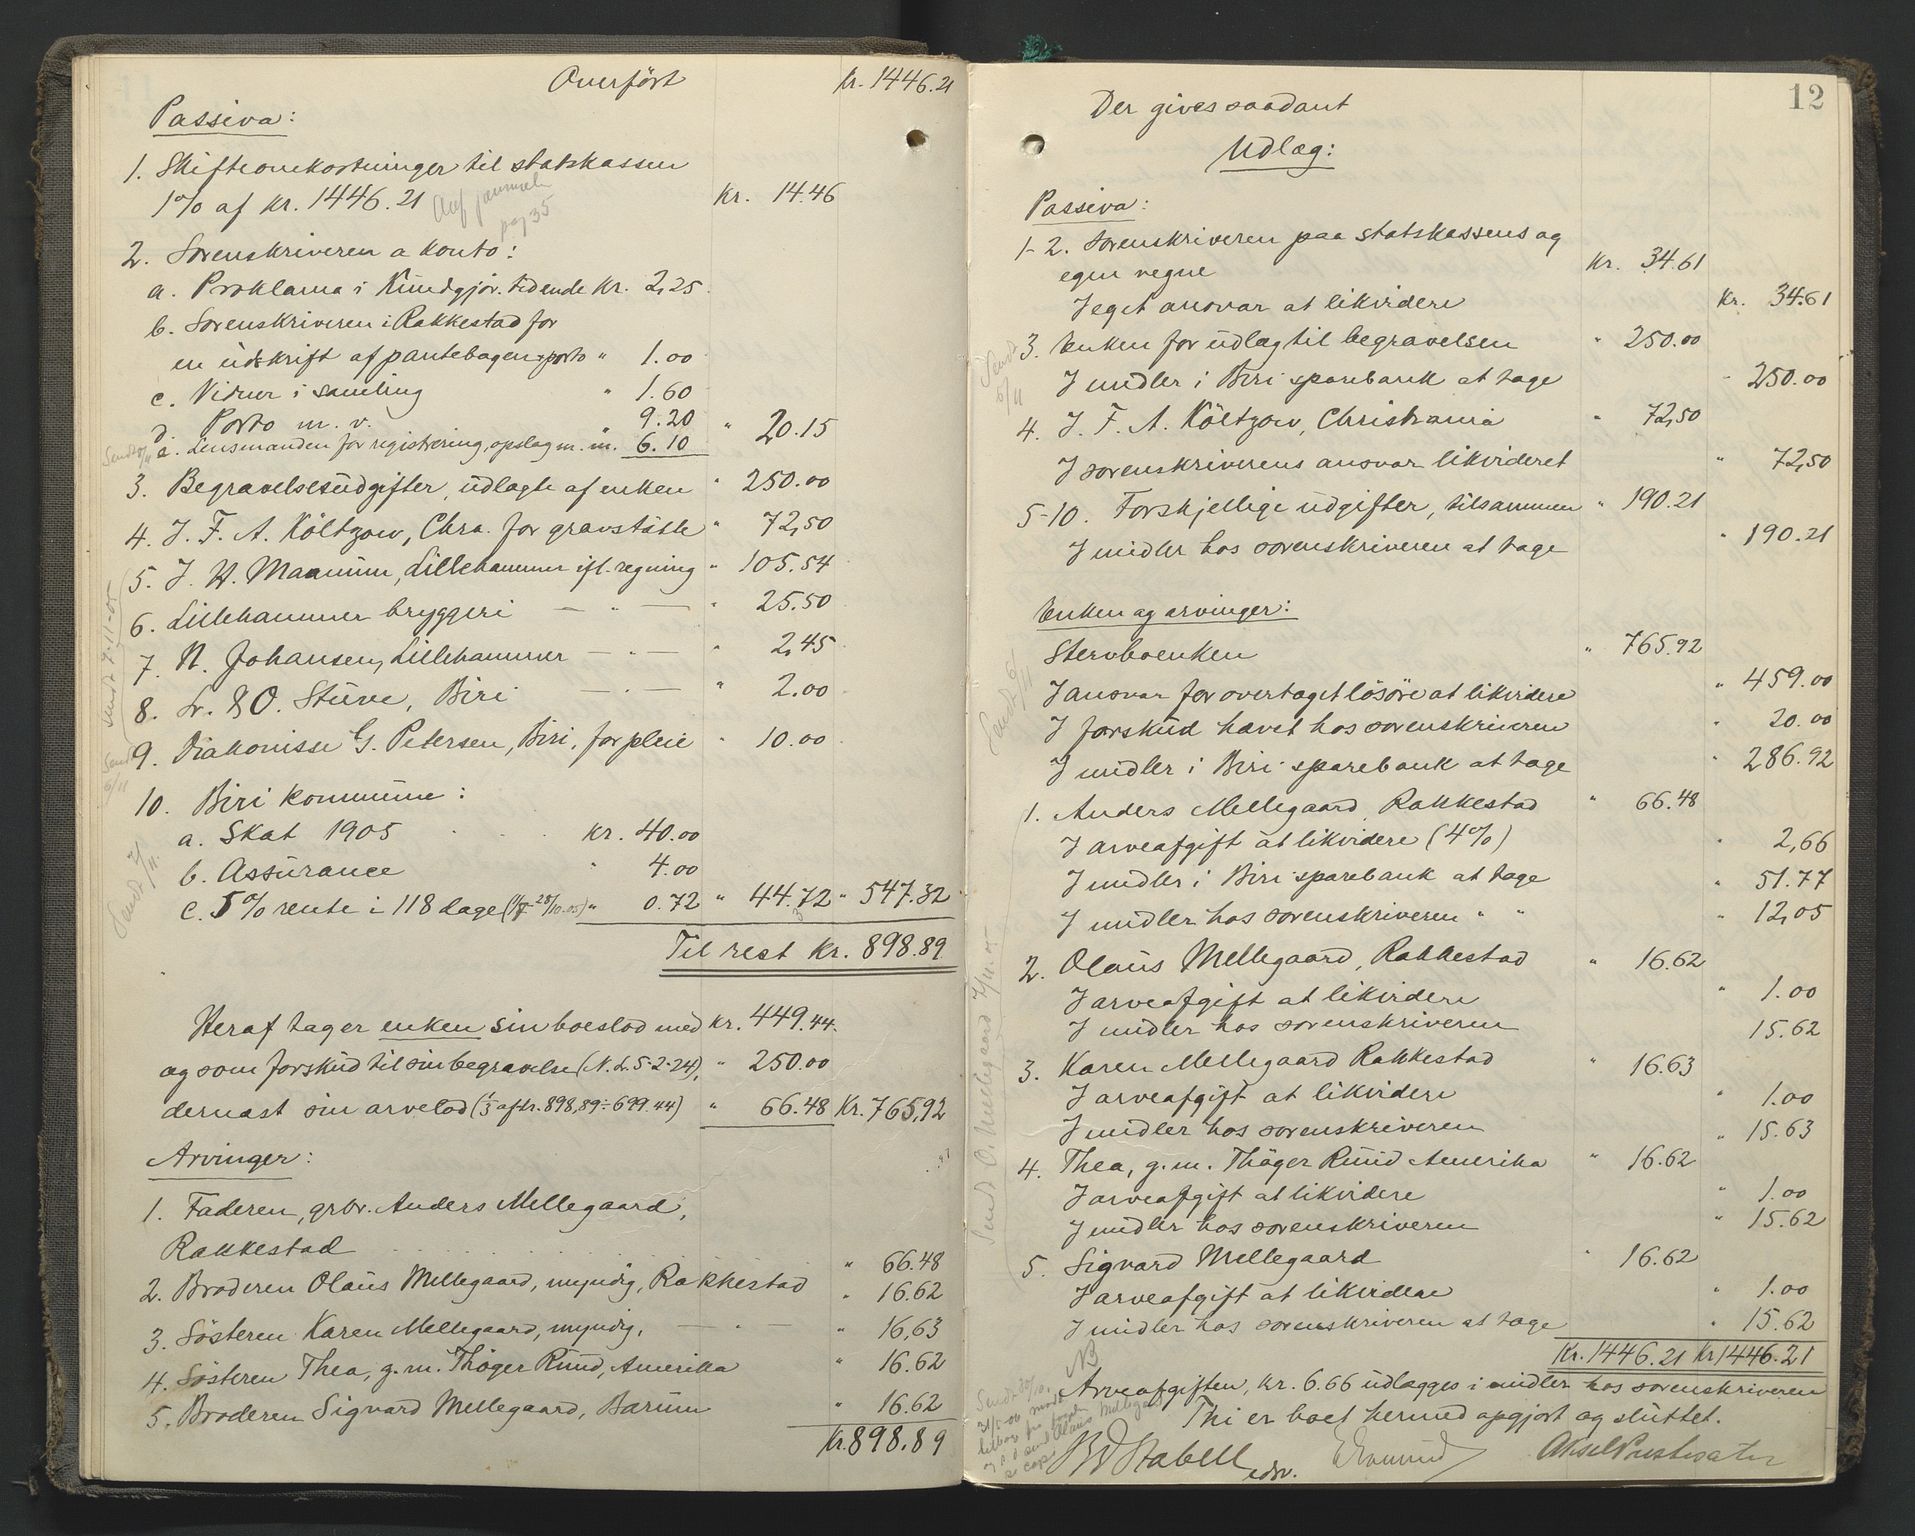 Overført Kr. 1446.21
Passiva:
1. Skifteomkostninger til statskassen
1% af kr. 1446.21 Kr. 14.46
pag 35
2. Sorenskriveren a konto:
a. Proklama i Kundgjør. tidende Kr. 2,25
b. Sorenskriveren i Rakkestad for
en udskrift af pantebogen + porto " 1.00
c. Vidner i samling " 1.60
d. Porto m. v. " 9.20 " 20.15
e. Lensmanden for registrering, opslag m. m. 6.10
3. Begravelsesudgifter, udlagte af enken " 250.00
4. J. F. A. Költzow, Chra. for gravstøtte " 72,50
5. J. H. Maanum, Lillehammer ifl. regning " 105.54
6. Lillehammer bryggeri — " — " 25.50
7. N. Johansen, Lillehammer — " — " 2,45
8. Sr. & O. Stuve, Biri — " — " 2.00
9. Diakonisse G. Petersen, Biri, for pleie " 10.00
10. Biri kommune:
a. Skat 1905 kr. 40.00
b. Assurance " 4.00
c. 5% rente i 118 dage " 0.72 " 44.72 " 547.32
Til rest kr. 898.89
Heraf tager enken sin boeslod med kr. 449.44
og som forskud til sin begravelse (N. L. 5-2-24), " 250.00
dernæst sin arvelod (1/3 af kr. 898,89 ÷ 699.44) " 66.48 Kr. 765,92
Arvinger:
1. Faderen, grbr. Anders Mellegaard,
Rakkestad " 66.48
2. Broderen Olaus Mellegaard, myndig, Rakkestad " 16.62
3. Søsteren Karen Mellegaard, myndig, — " — " 16,63
4. Søsteren Thea, g. m. Thøger Ruud, Amerika " 16.62
5. Broderen Sigvard Mellegaard, Bærum " 16.62
Kr. 898.89
12
Der gives saadant
Udlæg:
Passiva:
1-2. Sorenskriveren paa statskassens og
egne vegne Kr. 34.61
I eget ansvar at likvidere Kr. 34.61
3. Enken for udlæg til begravelsen " 250.00
I midler i Biri sparebank at tage " 250.00
4. J. F. A. Költzow, Christiania " 72,50
I sorenskriverens ansvar likvideret " 72,50
5-10. Forskjellige udgifter, tilsammen " 190.21
I midler hos sorenskriveren at tage " 190.21
Enken og arvinger:
Stervboenken " 765.92
I ansvar for overtaget løsøre at likvidere " 459.00
I forskud hævet hos sorenskriveren " 20.00
I midler i Biri sparebank at tage " 286.92
1. Anders Mellegaard, Rakkestad " 66.48
I arveafgift at likvidere (4%) " 2,66
I midler i Biri sparebank at tage " 51.77
I midler hos sorenskriveren " " " 12,05
2. Olaus Mellegaard, Rakkestad " 16.62
I arveafgift at likvidere " 1.00
I midler hos sorenskriveren 15.62
3. Karen Mellegaard Rakkestad " 16.63
I arveafgift at likvidere " 1.00
I midler hos sorenskriveren " 15.63
4. Thea, g. m. Thøger Ruud Amerika " 16.62
I arveafgift at likvidere " 1.00
I midler hos sorenskriveren " 15.62
5. Sigvard Mellegaard " 16.62
I arveafgift at likvidere " 1.00
I midler hos sorenskriveren at tage " 15.62
Kr. 1446.21 Kr 1446.21
NB
Arveafgiften, kr. 6.66 udlægges i midler hos sorenskriveren
Thi er boet hermed opgjort og sluttet.
Stabell